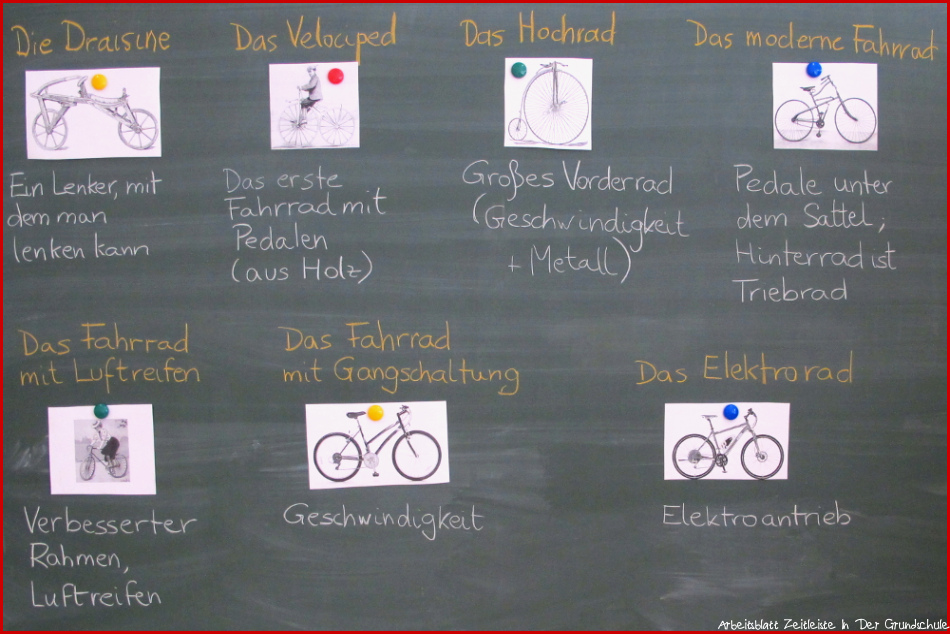 Die Draisine
Ein Lenker, mit
dem man
lenken kann
Das Velociped
Das erste
Fahrrad mit
Pedalen
(aus Holz)
Das Hochrad
Großes Vorderrad
(Geschwindigkeit
+ Metall)
Das moderne Fahrrad
Pedale unter
dem Sattel;
Hinterrad ist
Triebrad
Das Fahrrad
mit Luftreifen
Verbesserter
Rahmen,
Luftreifen
Das Fahrrad
mit Gangschaltung
Geschwindigkeit
Das Elektrorad
Elektroantrieb
Arbeitsblatt Zeitleiste In Der Grundschule